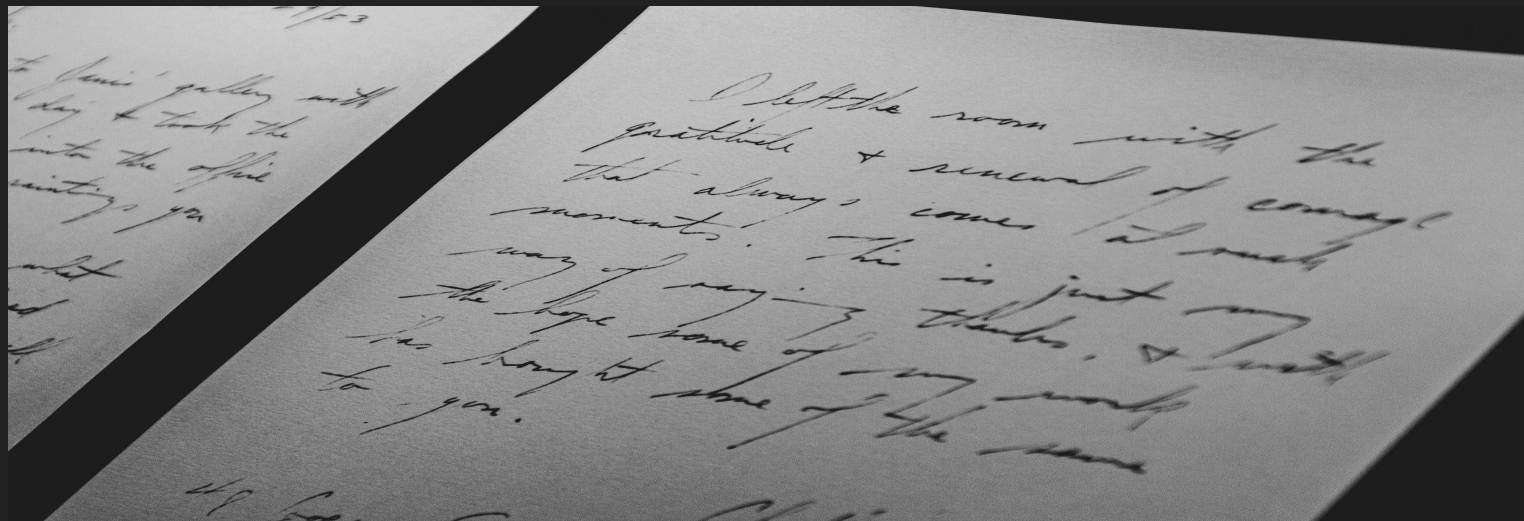 /53
to Janis' gallery with
day & took the
into the office
paintings you
what
I left the room with the
gratitude & renewal of courage
that always comes at such
moments. This is just my
way of saying thanks, & with
the hope some of my work
has brought some of the same
to you.